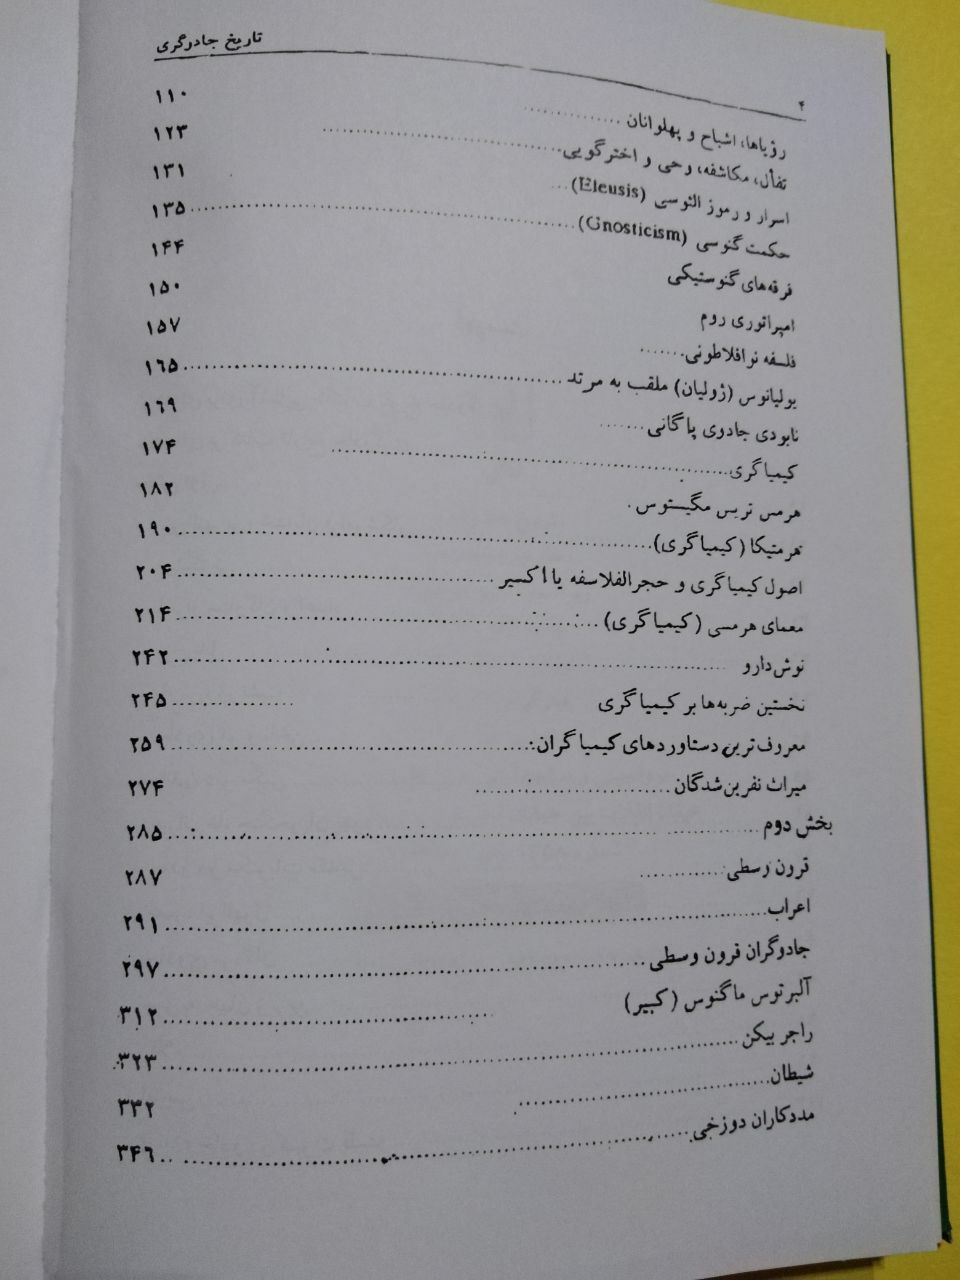 ۴ تاریخ جادوگری
رؤیاها، اشباح و پهلوانان ............... ۱۱۰
تفأل، مکاشفه، وحی و اخترگویی ............... ۱۲۳
اسرار و رموز الئوسی (Eleusis) ... ۱۳۱
حکمت گنوسی (Gnosticism) ............... ۱۳۵
فرقه‌های گنوستیکی ۱۴۴
امپراتوری روم ۱۵۰
فلسفه نوافلاطونی ....... ۱۵۷
یولیانوس (ژولیان) ملقب به مرتد ............... ۱۶۵
نابودی جادوی پاگانی ....... ۱۶۹
کیمیاگری ............... ۱۷۴
هرمس تریس مگیستوس . ۱۸۲
هرمتیکا (کیمیاگری) ............... ۱۹۰
اصول کیمیاگری و حجرالفلاسفه یا اکسیر ............... ۲۰۴
معمای هرمسی (کیمیاگری) ............... ۲۱۴
نوش‌دارو ............... ۲۴۲
نخستین ضربه‌ها بر کیمیاگری ............... ۲۴۵
معروف‌ترین دستاوردهای کیمیاگران ............... ۲۵۹
میراث نفرین‌شدگان ............... ۲۷۴
بخش دوم ............... ۲۸۵
قرون وسطی ............... ۲۸۷
اعراب ............... ۲۹۱
جادوگران قرون وسطی ............... ۲۹۷
آلبرتوس ماگنوس (کبیر) ............... ۳۱۲
راجر بیکن ............... ۳۲۳
شیطان ............... ۳۳۲
مددکاران دوزخی ............... ۳۴۶